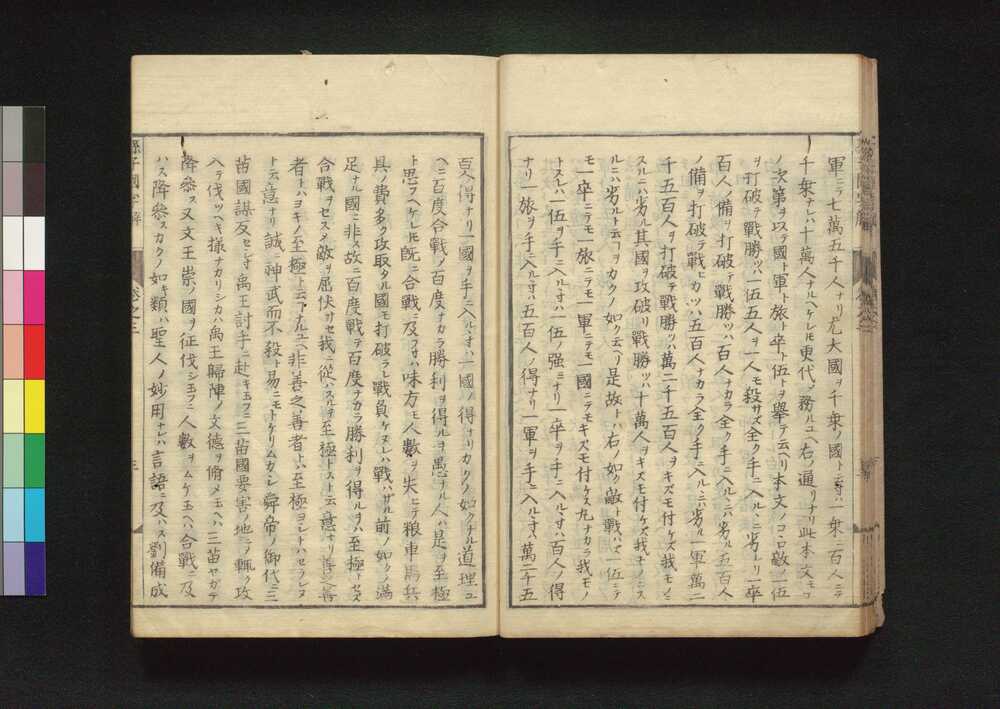 軍ニテ七萬五千人ナリ尤大國ヲ千乗ノ國ト云寸ハ一乗ニ百人ニテ
千乗ナレハ十萬人ナルヘケレ𪜈更代ノ務ルユヘ右ノ通リナリ此本文モコ
ノ次第ヲ以テ國ト軍ト旅ト卒ト伍トヲ舉テ云ヘリ本文ノコロ敵ノ一伍
ヲ打破テ戰勝ツハ一伍五人ヲ一人モ殺サズ全ク手ニ入ルヽニハ劣レリ一卒
百人ノ備ヲ打破テ戰勝ツハ百人ナカラ全ク手ニ入ルヽニハ劣ル五百人
ノ備ヲ打破テ戰ヒカツハ五百人ナカラ全ク手ニ入ルヽニハ劣ル一軍萬二
千五百人ヲ打破テ戰勝ツハ萬二千五百人ヲキズモ付ケズ我モノニ
スルニハ劣ル其國ヲ攻破リ戰勝ツハ十萬人ヲキズモ付ケズ我モノニス
ルニハ劣ルト云ヿヲカクノ如ク云ヘリ是故トハ右ノ如ク敵ト戰ハズ伍ニテ
モ一卒ニテモ一旅ニテモ一軍ニテモ一國ニテモキズモ付ケズ丸ナカラ我モノ
トスレハ一伍ヲ手ニ入ルヽ寸ハ一伍ノ强ミナリ一卒ヲ手ニ入ルヽ寸ハ百人ノ得
ナリ一旅ヲ手ニ入ルヽ寸ハ五百人ノ得ナリ一軍ヲ手ニ入ルヽ寸ハ萬二千五
百人得ナリ一國ヲ手ニ入ルヽ寸ハ一國ノ得ナリカクノ如クナル道理ユ
ヘニ百度合戰ノ百度ナカラ勝利ヲ得ルヲ愚ナル人ハ是ヲ至極
ト思フヘケレ𪜈既ニ合戰ニ及フ寸ハ味方モ人數ヲ失ニテ粮車馬兵
具ノ費多ク攻取タル國モ打破ラレ戰負ケヌレハ戰ハザル前ノ如クノ滿
足ナル國ニ非ス故ニ百度戰テ百度ナカラ勝利ヲ得ルヲハ至極トセズ
合戰ヲセスメ敵ヲ屈伏サセ我ニ從ハスルヲ至極トスト云意ナリ善之善
者トハヨキノ至極ト云ヿナルユヘ非善之善者トハ至極ヨレトハセラレヌ
ト云意ナリ誠ニ神武而不殺ト易ニモトケリムカシ舜帝ノ御代ニ三
苗國謀反セシ寸禹王討手ニ赴キ玉フニ三苗國要害ノ地ニテ輙ク攻
ヘテ伐ツヘキ樣ナカリシカハ禹王歸陣ノ文德ヲ脩メ玉ヘハ三苗ヤガテ
降參ス又文王崇ノ國ヲ征伐シ玉フニ人數ヲムケ玉ヘハ合戰ニ及
ハス降參スカクノ如キ類ハ聖人ノ妙用ナレハ言語ニ及ハス劉備成
孫子國字解
卷之三
三